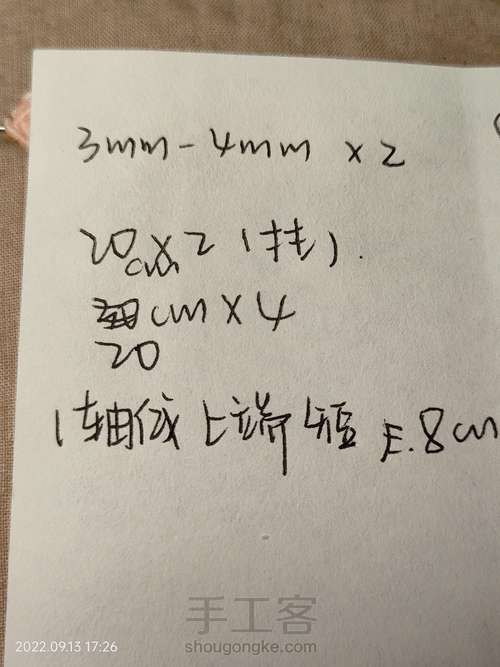 3mm-4mm ×2
20cm×2(扌).
cm×4
20
1轴线上端短 E.8cm
手工客
2022.09.13 17:26
shougongke.com